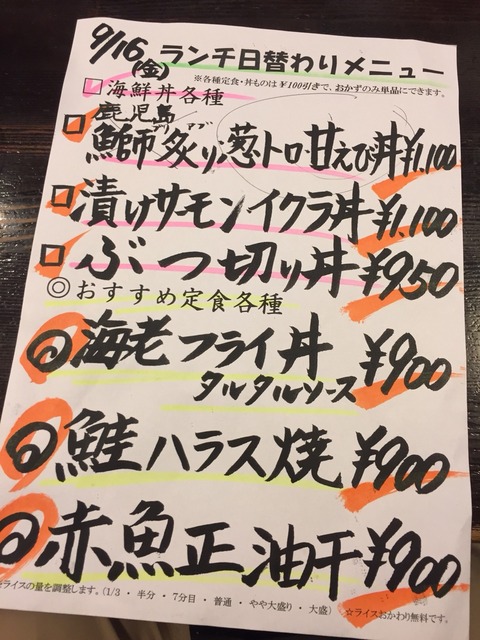 9/16(金) ランチ日替わりメニュー
※各種定食・丼ものは￥100引きで、おかずのみ単品にできます。
□海鮮丼各種
鹿児島
□鰤炙り葱トロ甘えび丼¥1,100
□漬けサーモンイクラ丼¥1,100
□ぶつ切り丼¥950
◎おすすめ定食各種
海老フライ丼¥900
タルタルソース
鮭ハラス焼¥900
赤魚正油干¥900
※ライスの量を調整します。(1/3 ・ 半分 ・ 7分目 ・ 普通 ・ やや大盛り ・ 大盛) ☆ライスおかわり無料です。